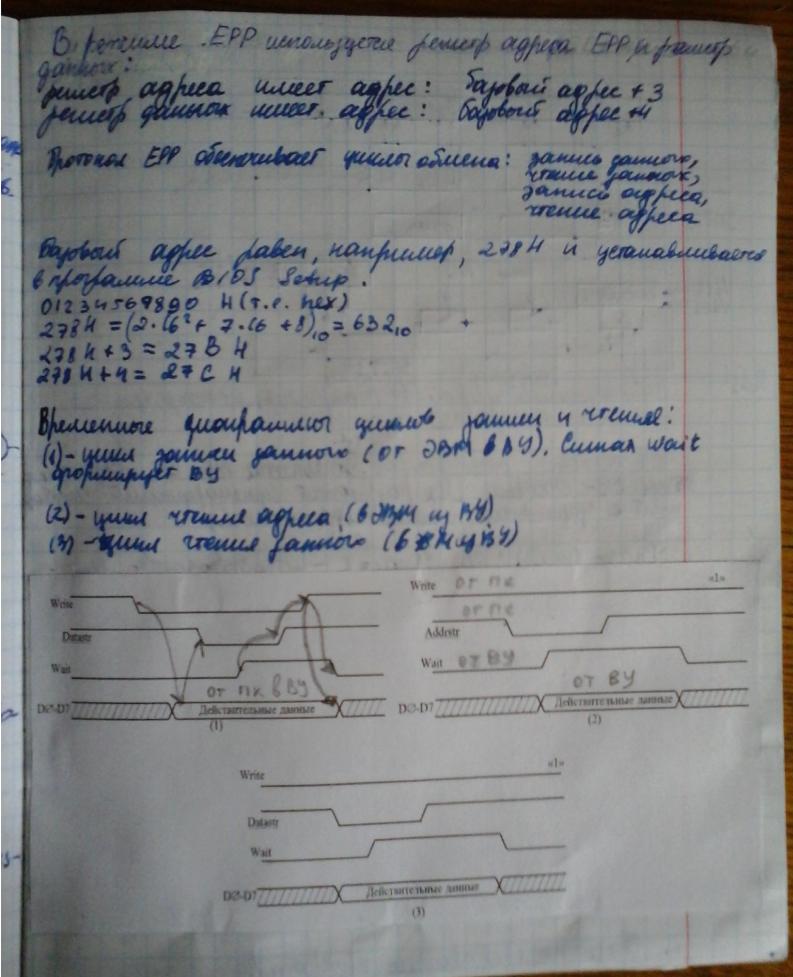 В режиме EPP используется регистр адреса EPP и регистр
данных:
регистр адреса имеет адрес: базовый адрес + 3
регистр данных имеет адрес: базовый адрес +4
Протокол EPP обеспечивает циклы обмена: запись данного,
чтение данных,
запись адреса,
чтение адреса
Базовый адрес равен, например, 278H и устанавливается
в программе BIOS Setup.
01234567890 H (т.е. hex)
278H = (2·16² + 7·16 + 8)₁₀ = 632₁₀
278H + 3 = 27B H
278H + 4 = 27C H
Временные диаграммы циклов записи и чтения:
(1) - цикл записи данного (от ЭВМ в ВУ). Сигнал Wait
формирует ВУ
(2) - цикл чтение адреса (в ЭВМ из ВУ)
(3) - цикл чтения данного (в ЭВМ из ВУ)
Write
Datastr
Wait
от ПК в ВУ
DØ-D7 Действительные данные
(1)
Write от ПК «1»
от ПК
Addrstr
Wait от ВУ
от ВУ
DØ-D7 Действительные данные
(2)
Write «1»
Datastr
Wait
DØ-D7 Действительные данные
(3)